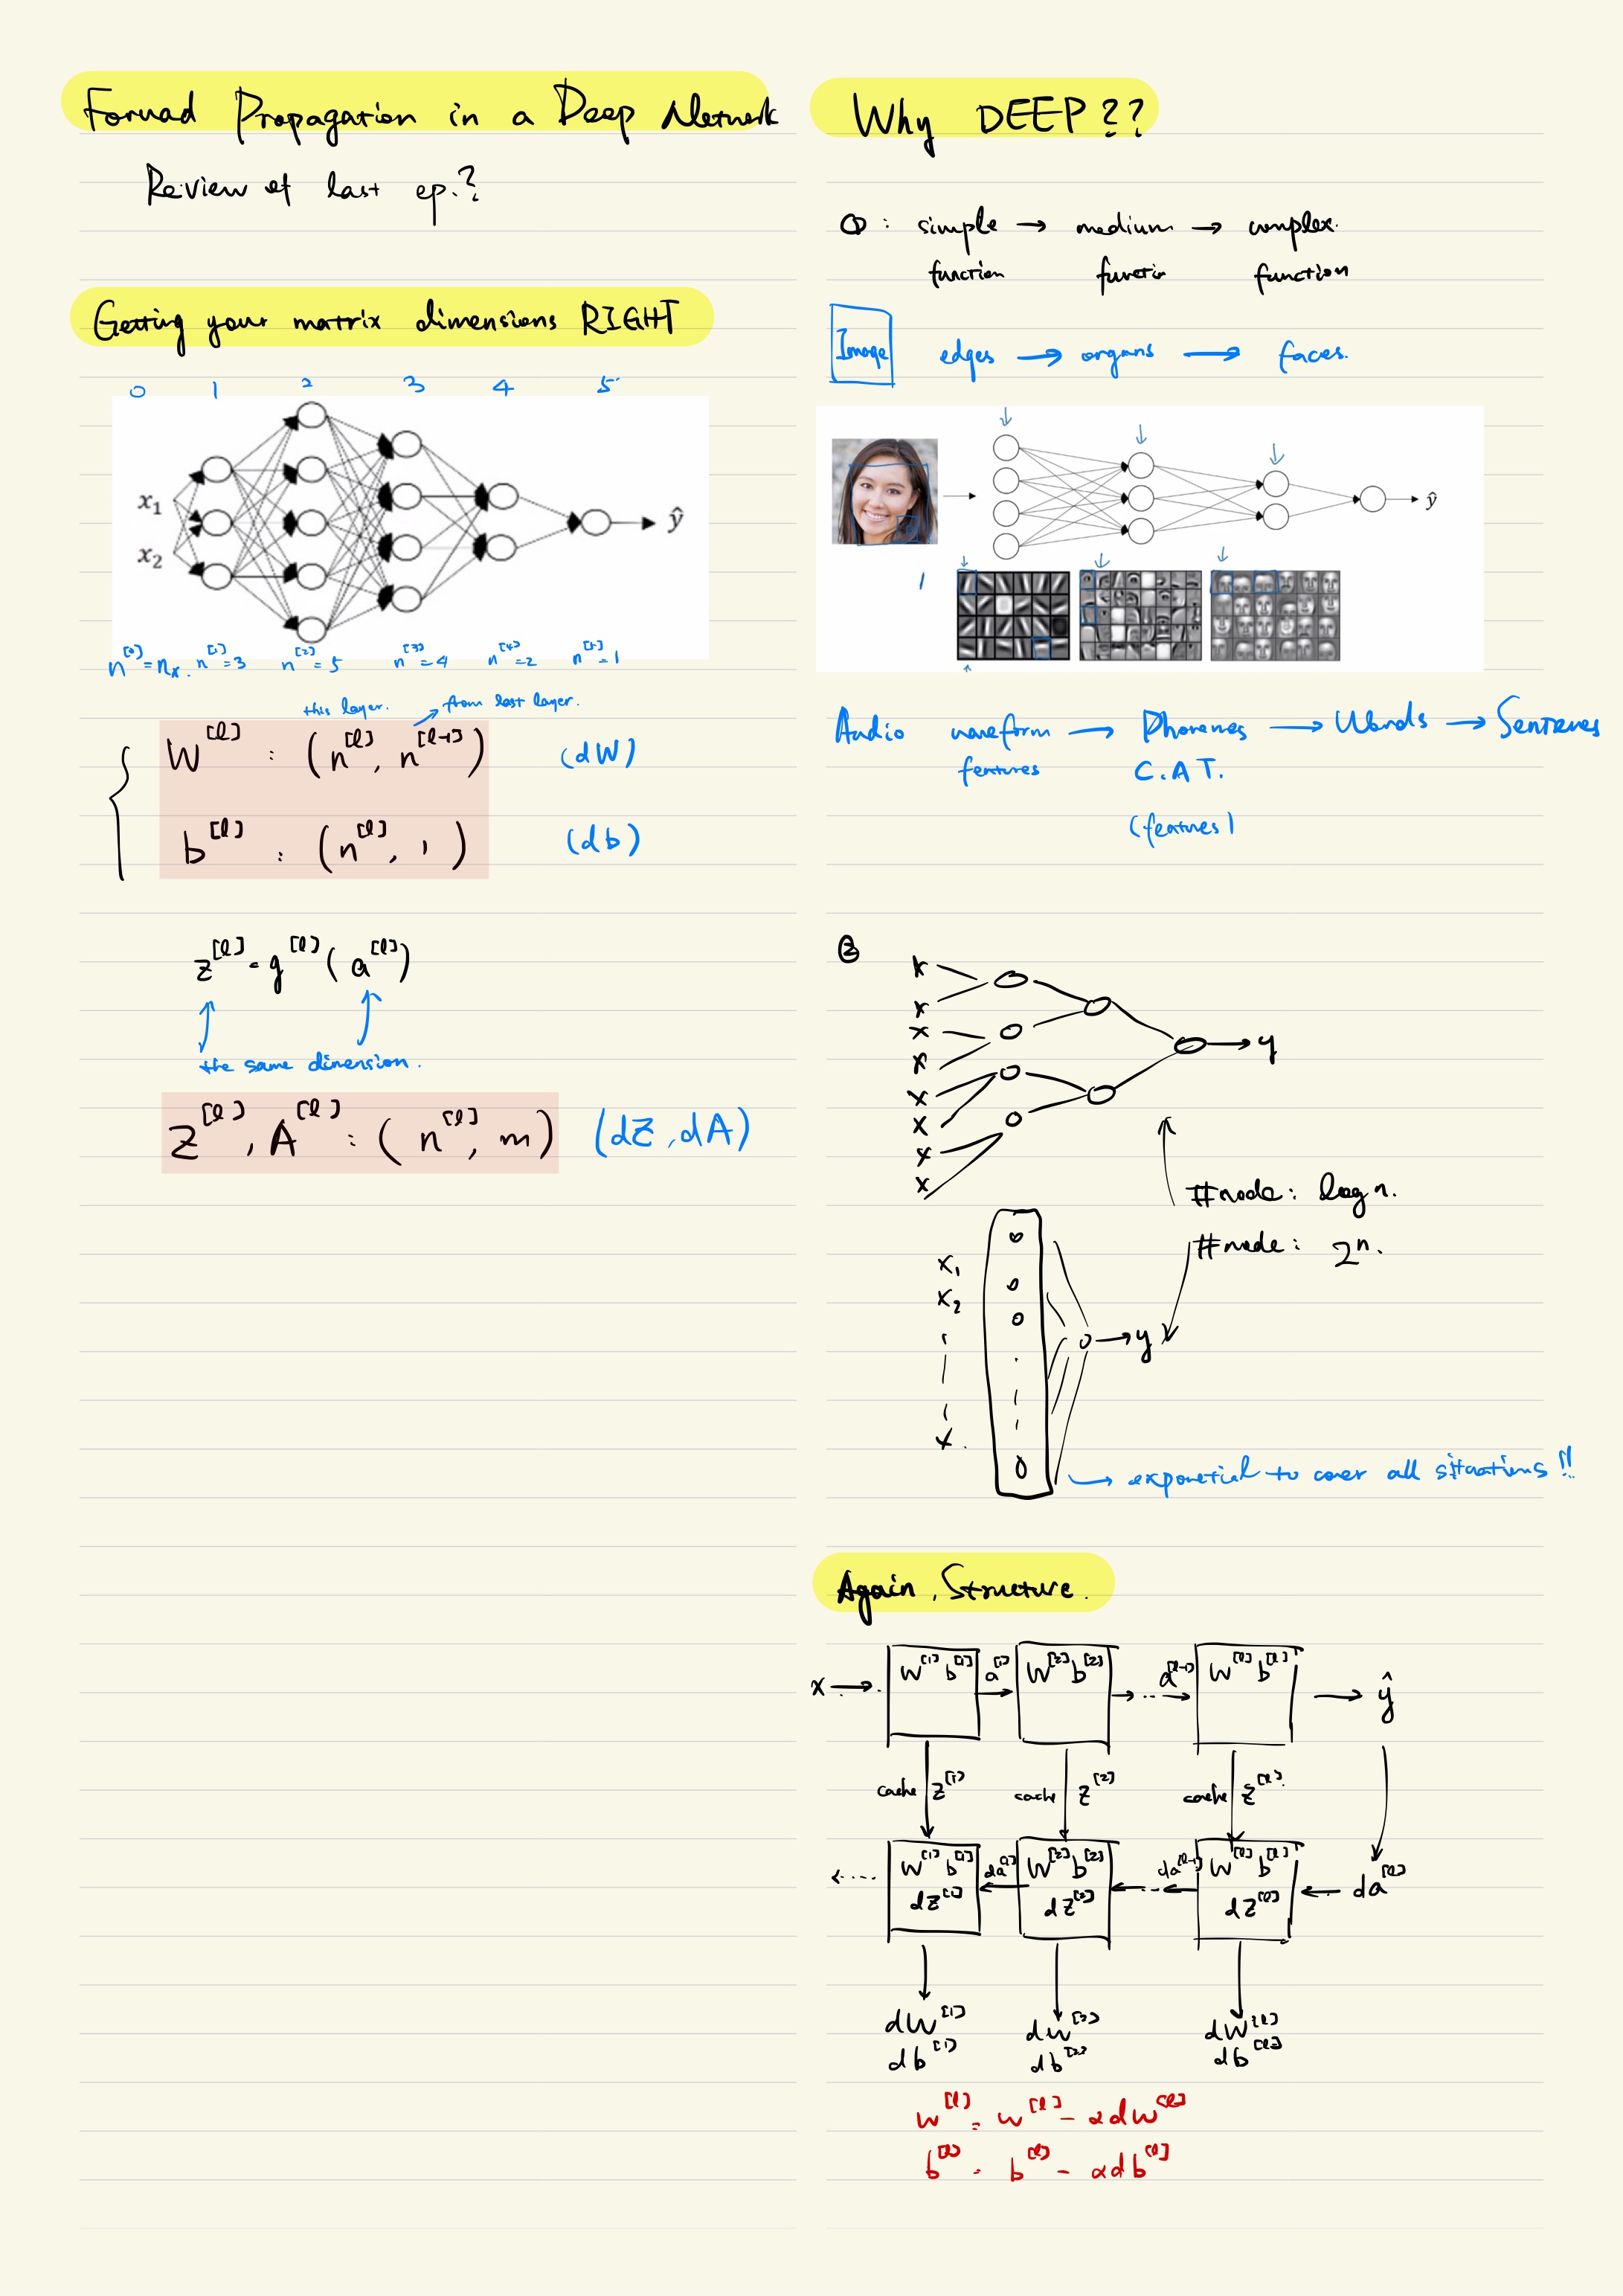 Forward Propagation in a Deep Network
Review of last ep.?
Getting your matrix dimensions RIGHT
0 1 2 3 4 5
x₁
x₂
ŷ
n^[0] = nₓ. n^[1] = 3 n^[2] = 5 n^[3] = 4 n^[4] = 2 n^[5] = 1
this layer. from last layer.
W^[l] : (n^[l], n^[l-1]) (dW)
b^[l] : (n^[l], 1) (db)
z^[l] = g^[l] (a^[l])
the same dimension.
Z^[l], A^[l] : (n^[l], m) (dZ, dA)
Why DEEP??
① : simple → medium → complex.
function function function
Image edges → organs → faces.
ŷ
Audio waveform → Phonemes → Words → Sentences
features C.A.T.
(features)
②
x
x
x
x
x
x
x
x
→ y
#node: log n.
#node: 2ⁿ.
x₁
x₂
x
→ y
→ exponential to cover all situations!!
Again, Structure.
x → W^[1] b^[1] a^[1] → W^[2] b^[2] → ... a^[l-1] → W^[l] b^[l] → ŷ
cache z^[1] cache z^[2] cache z^[l]
← ... W^[1] b^[1] da^[1] W^[2] b^[2] da^[l-1] W^[l] b^[l] ← da^[l]
dZ^[1] dZ^[2] dZ^[l]
dW^[1] dW^[2] dW^[l]
db^[1] db^[2] db^[l]
W^[l] = W^[l] - αdW^[l]
b^[l] = b^[l] - αdb^[l]